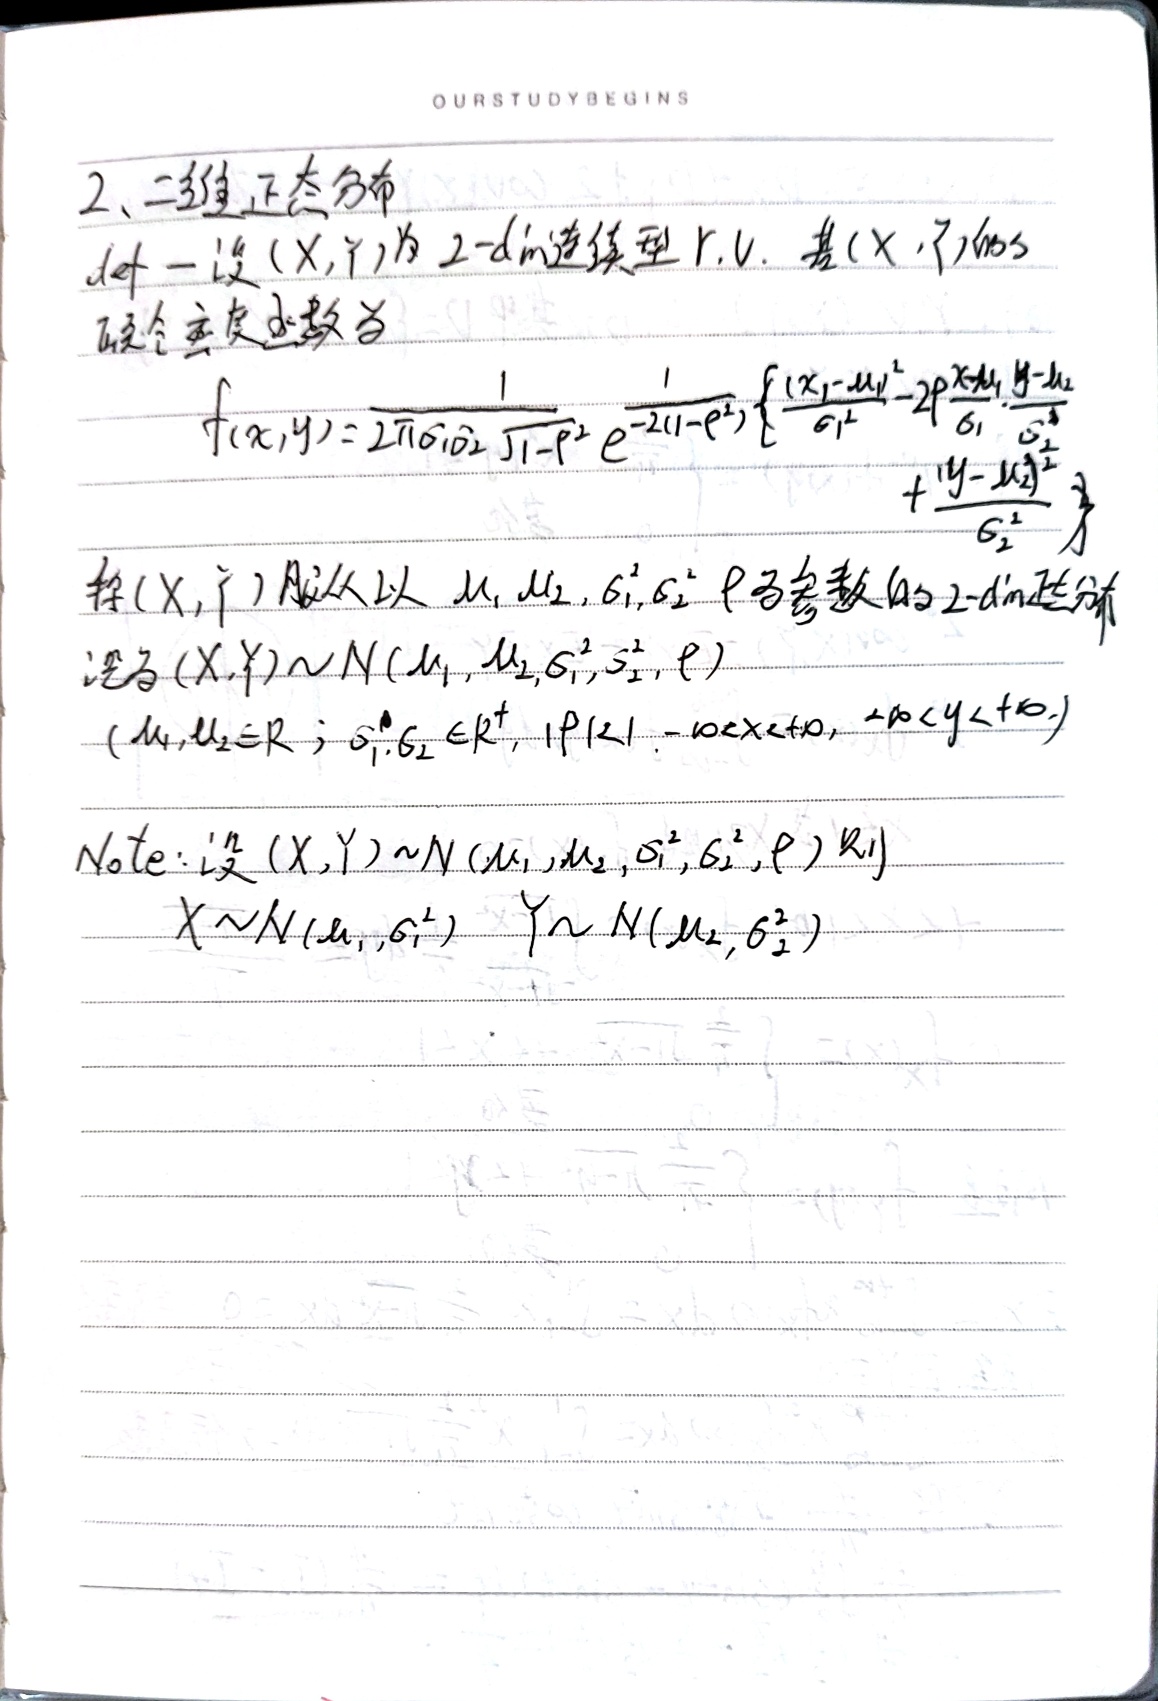 OURSTUDYBEGINS
2、二维正态分布
def 一 设 (X,Y)为 2-dim连续型 r.v. 若(X,Y)的
联合密度函数为
f(x,y)=\frac{1}{2πσ₁σ₂\sqrt{1-ρ²}} e^{\frac{1}{-2(1-ρ²)}\{\frac{(x₁-μ₁)²}{σ₁²}-2ρ\frac{x-μ₁}{σ₁}·\frac{y-μ₂}{σ₂}
+\frac{(y-μ₂)²}{σ₂²}\}}
称(X,Y)服从以 μ₁ μ₂,σ₁²,σ₂² ρ为参数的2-dim正态分布
记为(X,Y)~N(μ₁,μ₂,σ₁²,σ₂²,ρ)
(μ₁,μ₂∈R;σ₁,σ₂∈R⁺,|ρ|<1,-∞<x<+∞,-∞<y<+∞.)
Note:设 (X,Y)~N(μ₁,μ₂,σ₁²,σ₂²,ρ)则
X~N(μ₁,σ₁²) Y~N(μ₂,σ₂²)